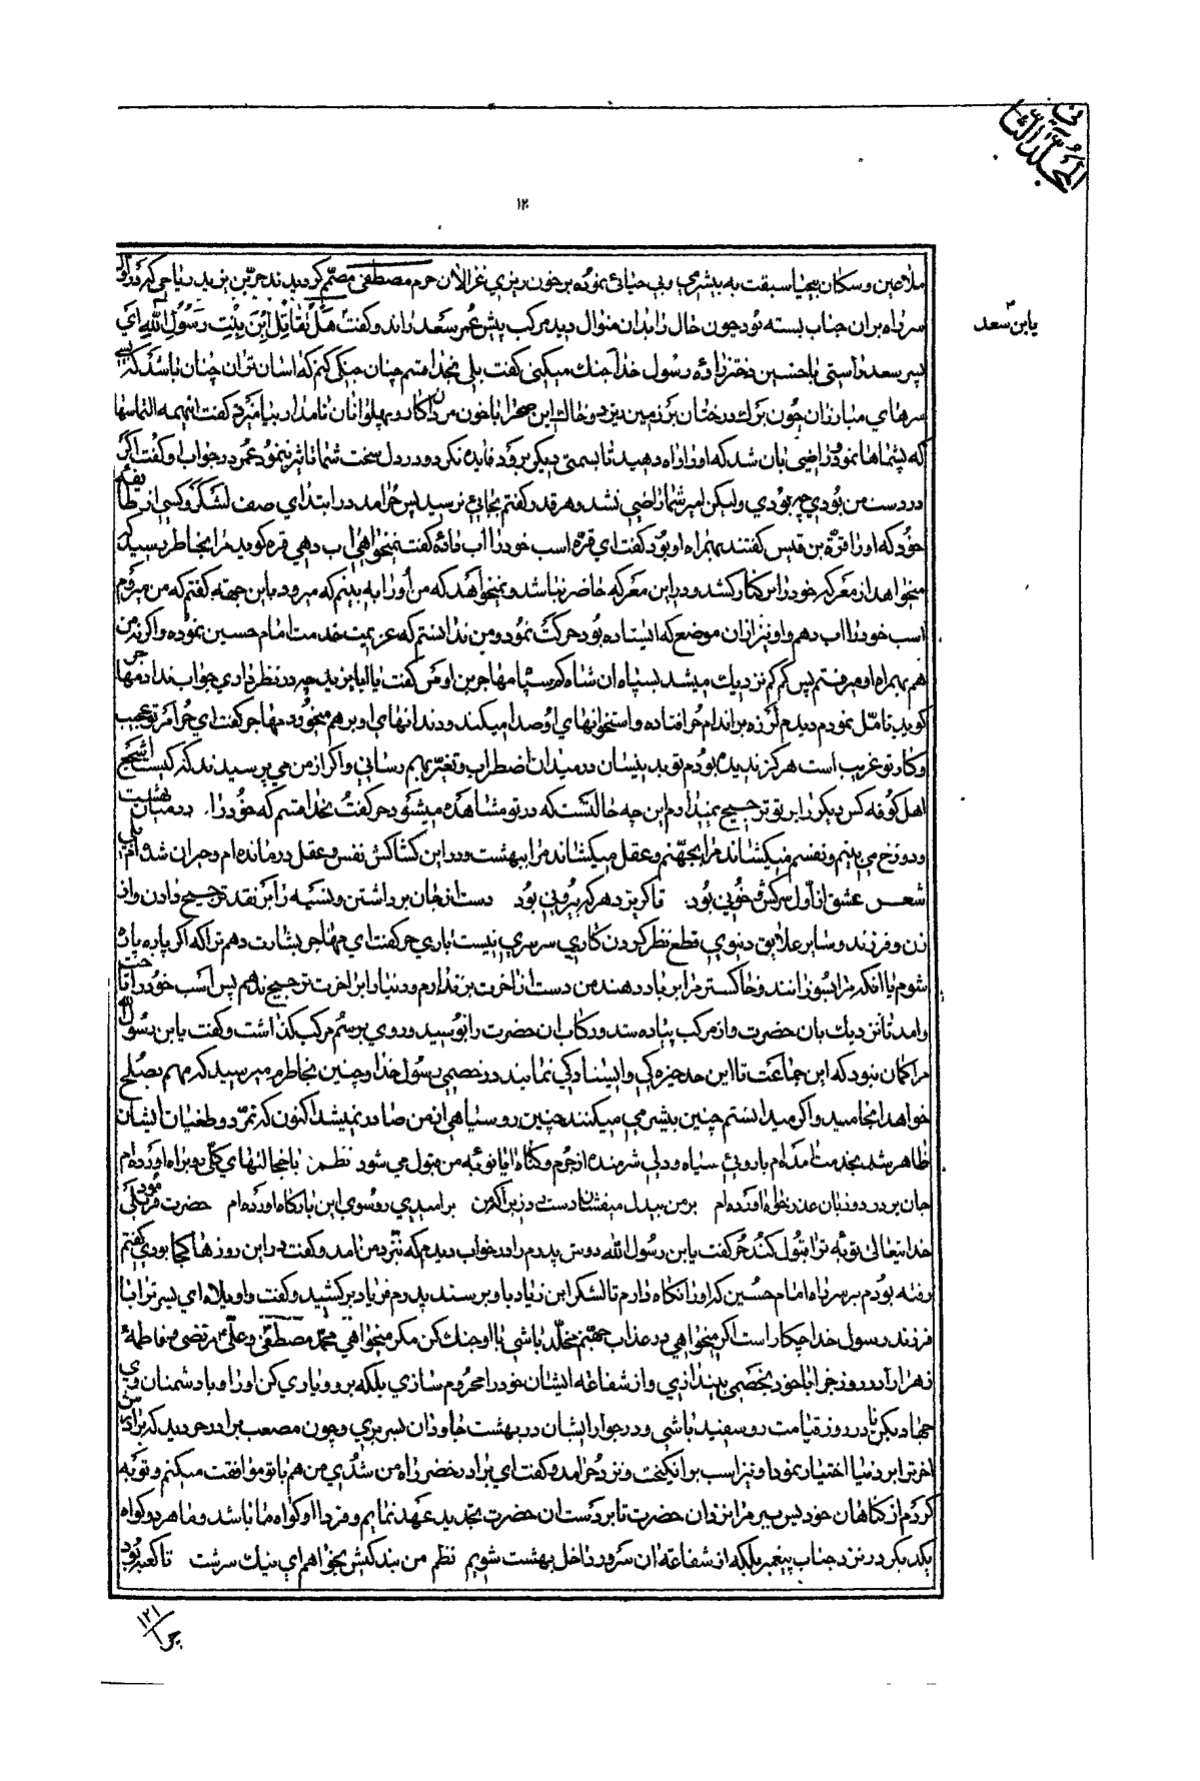 المجلد الثاني
۱۲
ملاعین و سکان بیحیا سبقت به بیشرمی و بی حیائی نموده بر خون ریزی غزالان حرم مصطفی مصمم کردیدند حر بن یزید ریاحی که در اول
سر راه بران جناب بسته بود چون حال را بدان منوال دید مرکب پیش عمر سعد راند و کفت هل تقاتل ابن بنت رسول الله ای
یا بن سعد
پسر سعد راستی با حسین دختر زاده رسول خدا جنك میکنی کفت بلی بخدا قسم چنان جنکی کنم که اسان تران چنان باشد که
سرهای مبارزان چون برك درختان بر زمین ریزد و خاك این صحرا با خون مردان کار و پهلوانان نامدار بیامیزد کفت اینهمه التماسها
که بشماها نمود راضی بان شد که او را راه دهید تا بسمتی دیکر برود فایده نکرد و در دل سخت شما تاثیر ننمود عمر در جواب او کفت اکر
در دست من بودی چه بودی ولیکن امیر شما راضی نشد و هر قدر کفتم بجائی نرسید پس حر امد در ابتدای صف لشکر و کسی از طایفه
خود که او را قرة بن قیس کفتند همراه او بود کفت ای قره اسب خود را اب داده کفت نه میخواهی اب دهی قره کوید مرا بخاطر رسید که
میخواهد از معرکه خود را بر کنار کشد و در این معرکه حاضر نباشد و نمیخواهد که من او را به بینم که میرود باین جهته کفتم که من میروم
اسب خود را اب دهم و او نیز ازان موضع که ایستاده بود حرکت نمود و من ندانستم که عزیمت خدمت امام حسین نموده و اکرنه من
هم همراه او میرفتم پس کم کم نزدیك میشد بسپاه ان شاه کم سپاه مهاجر بن اوس کفت یا ابا یزید چه در نظر داری جواب نداد مهاجر
کوید تامل نمودم دیدم لرزه بر اندام حر افتاده و استخوانهای او صدا میکند و دندانهای او بر هم میخورد مهاجر کفت ای حر امر تو عجیب
و کار تو غریب است هرکز ندیده بودم تو بدینسان در میدان اضطراب و تغیر بهم رسانی و اکر از من می پرسیدند که کیست اشجع
اهل کوفه کس دیکر را بر تو ترجیح نمیدادم این چه حالتست که در تو مشاهده میشود حر کفت بخدا قسم که خود را در میان بهشت
و دوزخ می بینم و نفسم میکشاند مرا بجهنم و عقل میکشاند مرا ببهشت و در این کشاکش نفس و عقل درمانده ام و حیران شده ام بلی
شعر عشق از اول سرکش و خونی بود تا کریزد هر که بیرونی بود دست از جان برداشتن و نسیه را بر نقد ترجیح دادن و از
زن و فرزند و سایر علایق دنیوی قطع نظر کردن کاری سرسری نیست باری حر کفت ای مهاجر بشارت دهم ترا که اکر پاره پاره
شوم یا انکه مرا بسوزانند و خاکستر مرا بر باد دهند من دست از اخرت بر ندارم و دنیا را بر اخرت ترجیح ندهم پس اسب خود را تاخت
و امد تا نزدیك بان حضرت و از مرکب پیاده شد و رکاب ان حضرت را بوسید و روی بر سم مرکب کذاشت و کفت یا بن رسول الله
مرا کمان نبود که این جماعت تا این حد خیره کی و ایستادکی نمایند در خصمی رسول خدا و چنین بخاطرم میرسید که مهم بصلح
خواهد انجامید و اکر میدانستم چنین بیشرمی میکنند چنین روسیاهی از من صادر نمیشد اکنون که تمرد و طغیان ایشان
ظاهر شد بخدمت امده ام با روئی سیاه و دلی شرمنده از جرم و کناه ایا توبه من قبول می شود نظم با خجالتهای کلی رو براه اورده ام
جان بر در و زبان عذر خواه اورده ام بر من بیدل میفشان دست رد زیرا که من بر امیدی رو سوی این بارکاه اورده ام حضرت فرمود بلی
خدایتعالی توبه ترا قبول کند حر کفت یا بن رسول الله دوش پدرم را در خواب دیدم که نزد من امد و کفت در این روزها کجا بودی کفتم
رفته بودم بر سر راه امام حسین که او را نکاه دارم تا لشکر ابن زیاد باو برسند پدرم فریاد برکشید و کفت واویلاه ای پسر ترا با
فرزند رسول خدا چکار است اکر میخواهی در عذاب جهنم مخلد باشی با او جنك کن مکر میخواهی محمد مصطفی و علی مرتضی و فاطمه
زهرا را در روز جزا با خود بخصمی بیندازی و از شفاعت ایشان خود را محروم سازی بلکه برو و یاری کن او را و با دشمنان وی
جهاد بکن تا در روز قیامت روسفید باشی و در جوار ایشان در بهشت جاودان بسر بری و چون مصعب برادر حر دید که برادرش
اخرت را بر دنیا اختیار نمود او نیز اسب برانکیخت و نزد حر امد و کفت ای برادر خضر راه من شدی من هم با تو موافقت میکنم و توبه
کردم از کناهان خود پس ببر مرا نزد ان حضرت تا بر دست ان حضرت تجدید عهد نمایم و فردا او کواه ما باشد و ما هر دو کواه
یکدیکر در نزد جناب پیغمبر بلکه از شفاعت ان سرور داخل بهشت شویم نظم من بندکیش بخواهم ای نیك سرشت تا کعبه بود
۱۲۱